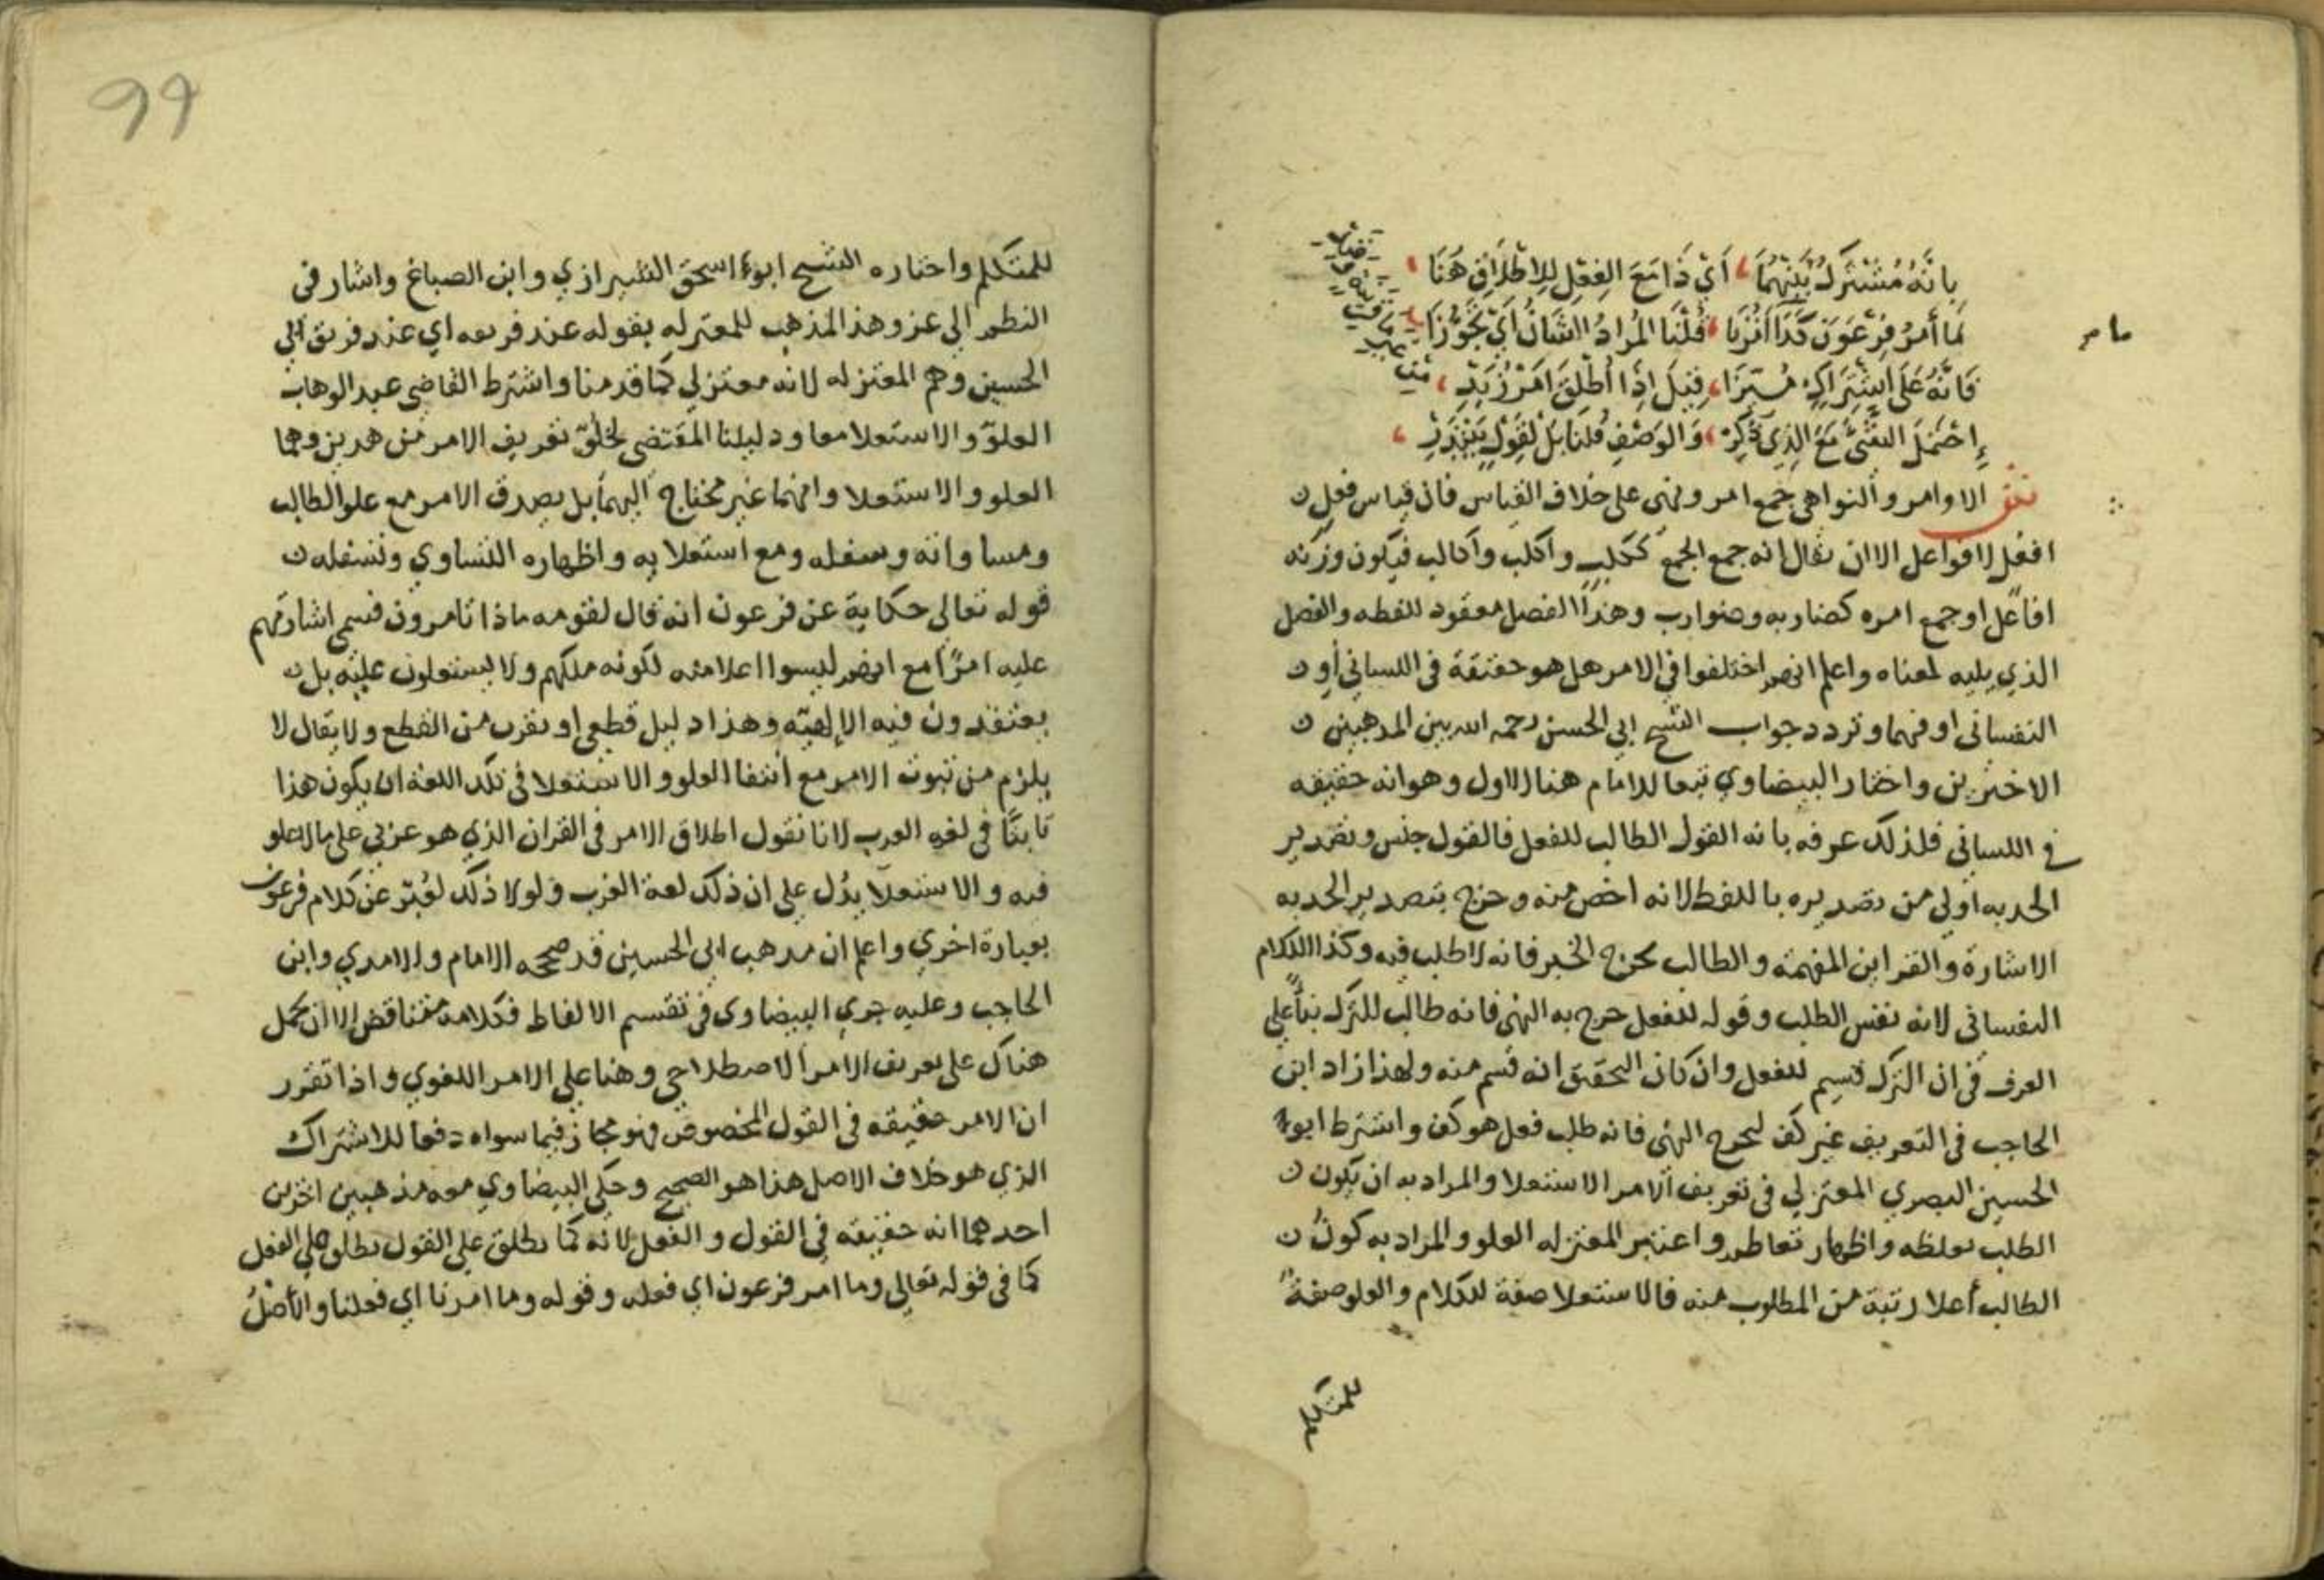 بِانَّهُ مُشْتَرَكُ بَيْنَهُمَا أَيْ ذَا مَعَ الفِعْلِ لِلِاطْلَاقِ هُنَا
لَمَا أَمْرُ فِرْعَوْنَ كَذَا أَمْرُنَا قُلْنَا المُرَادُ الشَّانُ أَيْ تَجَوُّزَا
فَانَّهُ عَلَى اشْتِرَاكٍ قِيلَ اِذَا أُطْلِقَ اَمْرُ زَيْدِ
مع الذي ذكر والوصف قلنا بل لقول
الاوامر والنواهي جمع امر ونهي على خلاف القياس فان قياس فعل
افعل لا فواعل الا ان يقال انه جمع الجمع ككلب واكلب واكالب فيكون وزنه
افاعل او جمع امره كضاربه وضوارب وهذا الفصل معقود للفظه والفصل
الذي يليه لمعناه واعلم انهم اختلفوا في الامر هل هو حقيقة في اللساني او
النفساني او فيهما وتردد جواب الشيخ ابي الحسن رحمه الله بين المذهبين
الاخيرين واختار البيضاوي تبعا للامام هنا الاول وهو انه حقيقه
في اللساني فلذلك عرفه بانه القول الطالب للفعل فالقول جنس وتصدير
الحد به اولي من تصديره باللفظ لانه اخص منه وخرج بتصدير الحد به
الاشارة والقراين المفهمة والطالب يخرج الخبر فانه لا طلب فيه وكذا الكلام
النفساني لانه نفس الطلب وقوله للفعل خرج به النهي فانه طالب للترك بنأً علي
العرف في ان الترك قسيم للفعل وان كان التحقيق انه قسم منه ولهذا زاد ابن
الحاجب في التعريف غير كف ليخرج النهي فانه طلب فعل هو كف واشترط ابو
الحسين البصري المعتزلي في تعريف الامر الاستعلا والمراد به ان يكون
الطلب بغلظه واظهار تعاظم واعتبر المعتزله العلو والمراد به كونُ
الطالب أعلا رتبة من المطلوب منه فالاستعلا صفة للكلام والعلو صفةٌ
للمتكلم
99
للمتكلم واختاره الشيخ ابو اسحق الشيرازي وابن الصباغ واشار في
النظم الي عزو هذا المذهب للمعتزله بقوله عند فريقه اي عند فريق ابي
الحسين وهم المعتزله لانه معتزلي كما قدمنا واشترط القاضي عبد الوهاب
العلوّ والاستعلا معا ودليلنا المقتضي لخلوّ تعريف الامر من هذين وهما
العلو والاستعلا وانهما غير محتاج اليهما بل يصدق الامر مع علو الطالب
ومساواته وسفله ومع استعلايه واظهاره التساوي وتسفله
قوله تعالى حكاية عن فرعون انه قال لقومه ماذا تامرون فسمي اشارتهم
عليه امرًا مع انهم ليسوا اعلا منه لكونه ملكهم ولا يستعلون عليه بل
يعتقدون فيه الالهيّه وهذا دليل قطعي او يقرب من القطع ولا يقال لا
يلزم من ثبوت الامر مع انتفا العلو والاستعلا في تلك اللغه ان يكون هذا
ثابتًا في لغه العرب لانا نقول اطلاق الامر في القران الذي هو عربي على ما لا علو
فيه والاستعلا يدُل على ان ذلك لغة العرب ولولا ذلك لعُبّر عن كلام فرعون
بعبارة اخري واعلم ان مذهب ابي الحسين قد صححه الامام والامدي وابن
الحاجب وعليه جري البيضاوي في تقسيم الالفاظ فكلامه متناقض الا ان يحمل
هناك على تعريف الامر الاصطلاحي وهنا علي الامر اللغوي واذا تقرر
ان الامر حقيقه في القول المخصوص فهو مجاز فيما سواه دفعا للاشتراك
الذي هو خلاف الاصل هذا هو الصحيح وحكي البيضاوي معه مذهبين اخرين
احدهما انه حقيقه في القول والفعل لانه كما يطلق علي القول يطلق علي الفعل
كما في قوله تعالي وما امر فرعون اي فعله وقوله وما امرنا اي فعلنا والأصْلُ